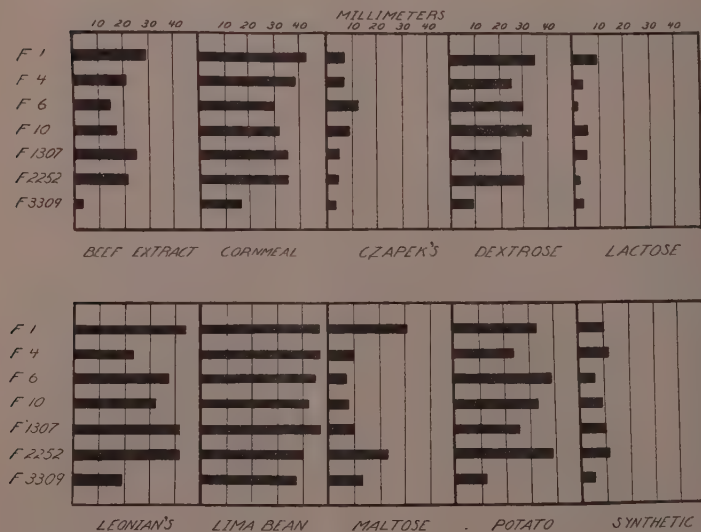 MILLIMETERS
10 20 30 40 10 20 30 40 10 20 30 40 10 20 30 40 10 20 30 40
F 1
F 4
F 6
F 10
F 1307
F 2252
F 3309
BEEF EXTRACT CORNMEAL CZAPEK'S DEXTROSE LACTOSE
F 1
F 4
F 6
F 10
F 1307
F 2252
F 3309
LEONIAN'S LIMA BEAN MALTOSE POTATO SYNTHETIC